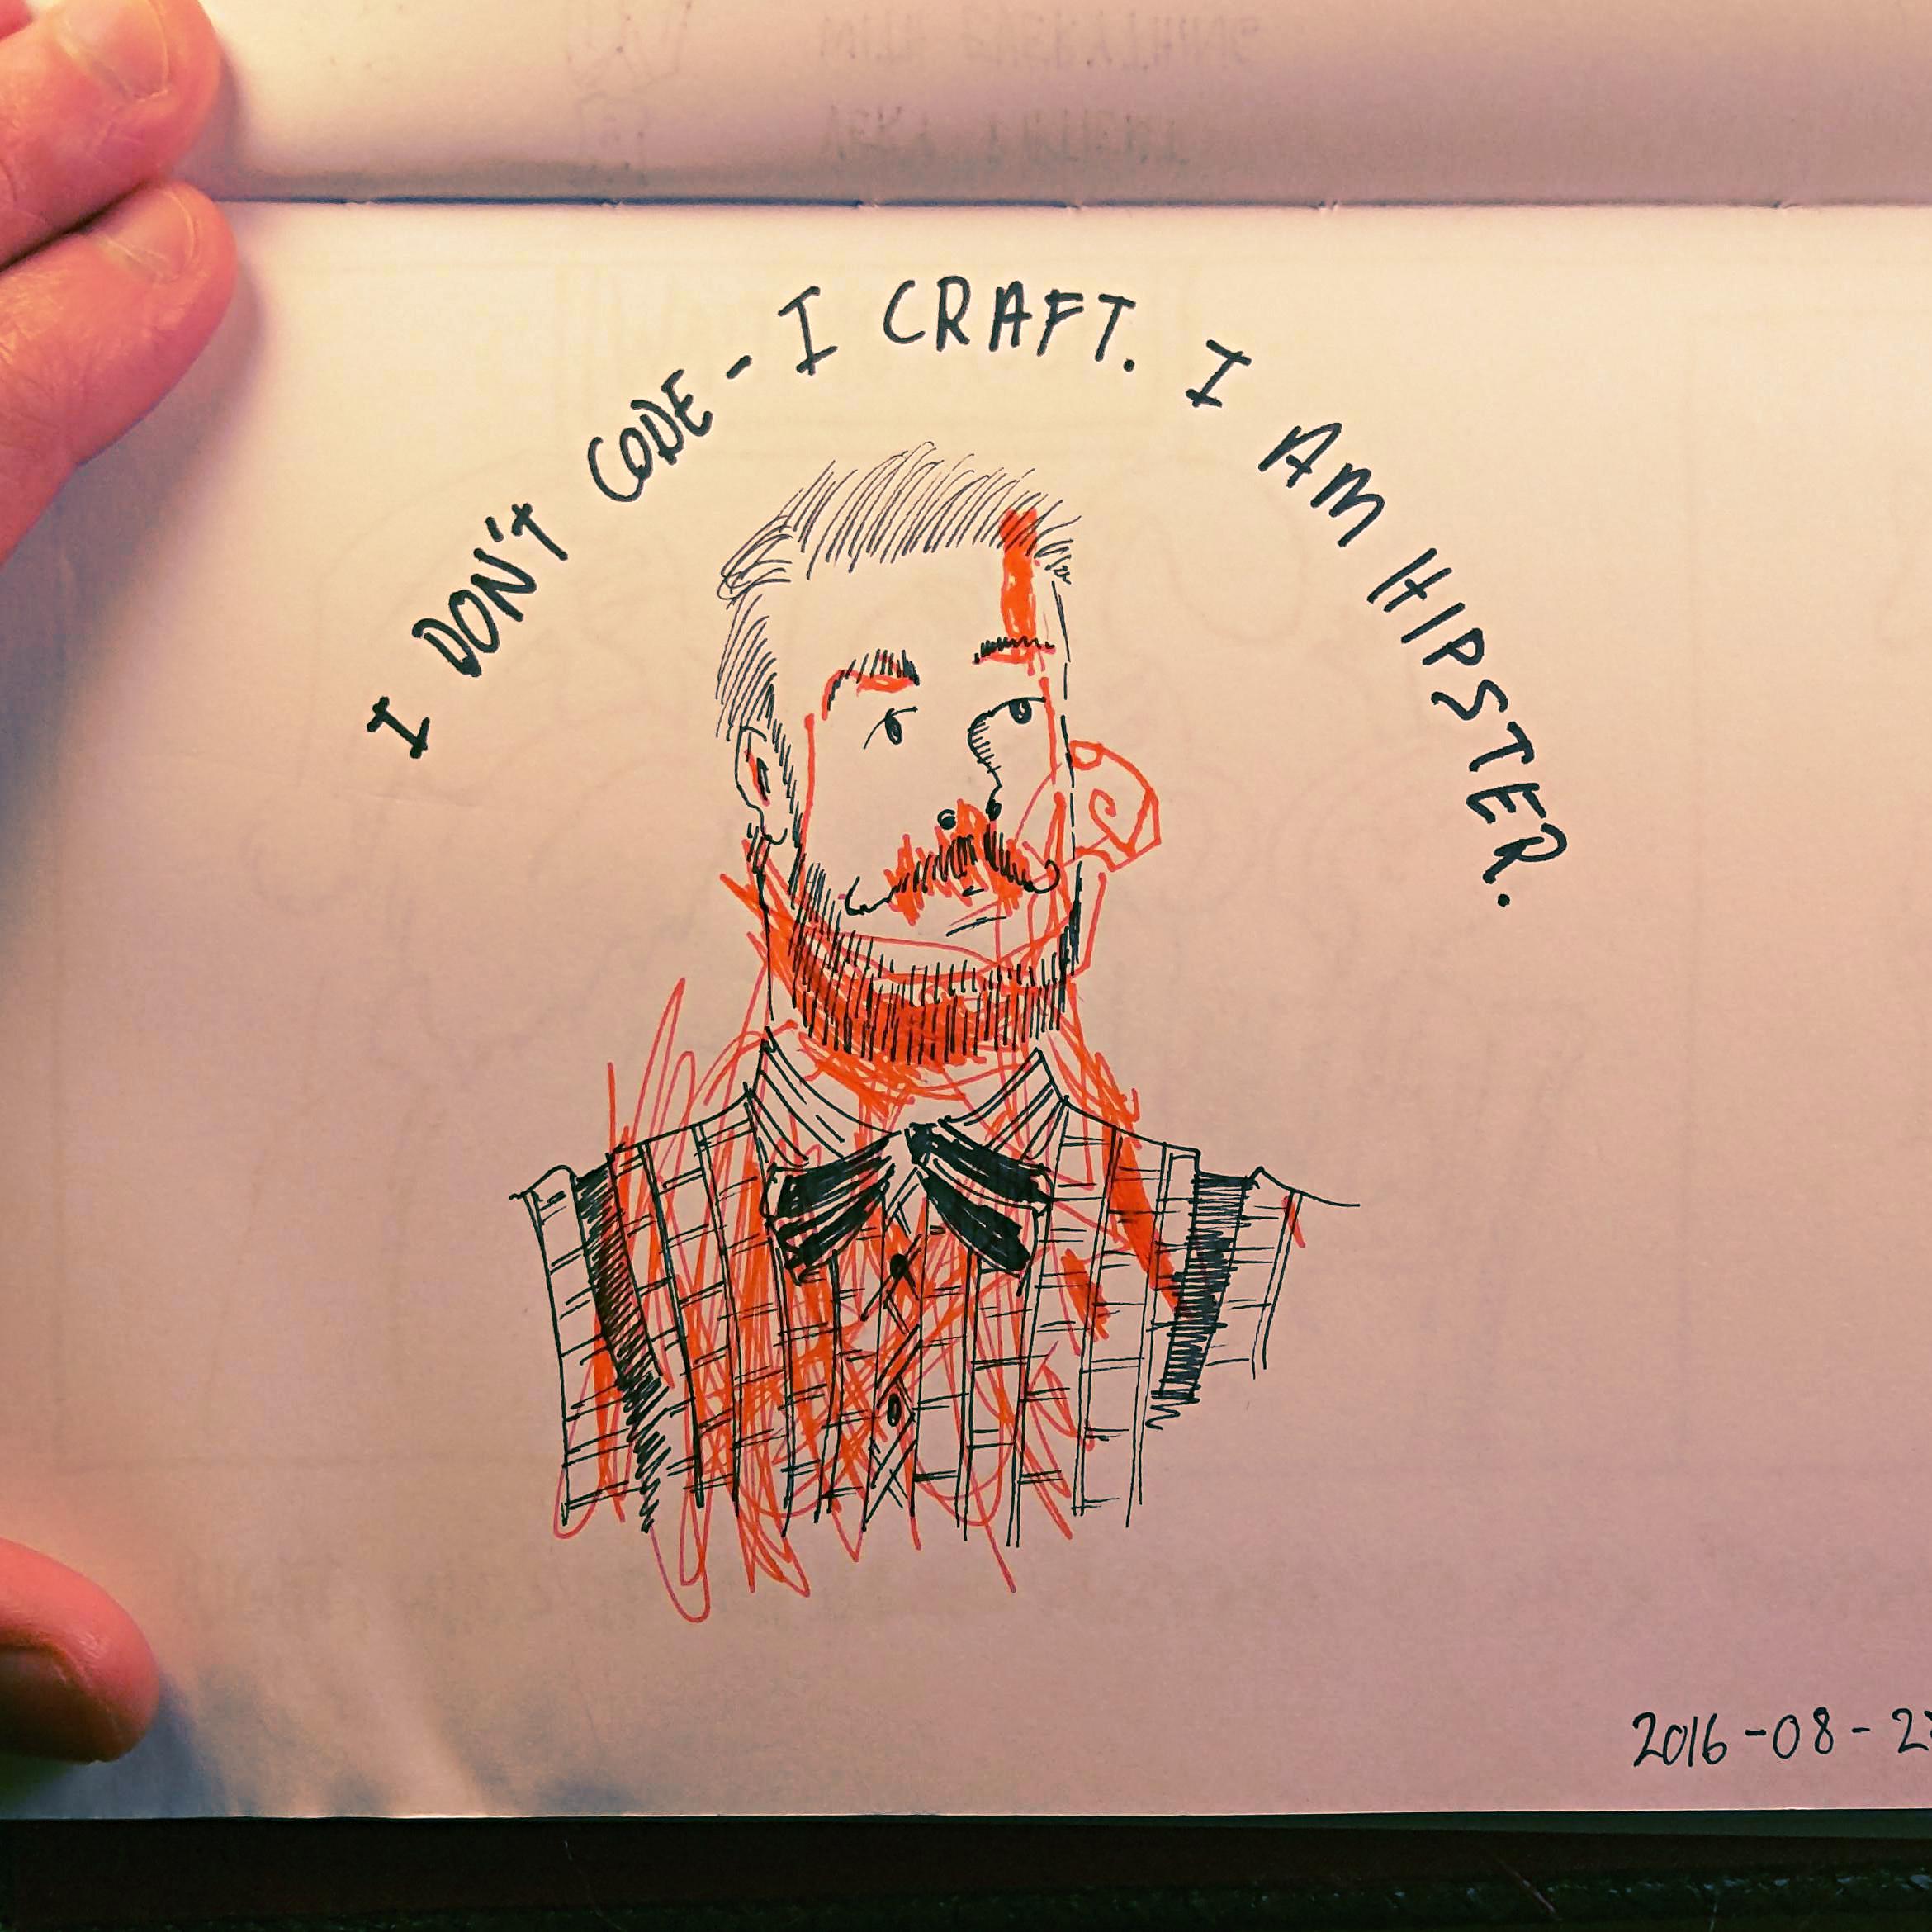 I DON'T CODE - I CRAFT. I AM HIPSTER.
2016-08-2